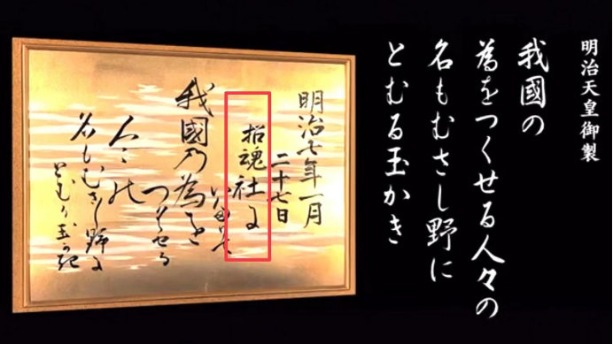 明治天皇御製
我國の
為をつくせる人々の
名もむさし野に
とむる玉かき
明治七年一月
二十七日
招魂社に
我國乃為を
つくせる
人々能
名もむさし野に
とむる玉可起